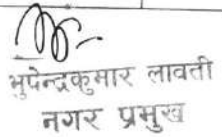 भुपेन्द्रकुमार लावती
नगर प्रमुख